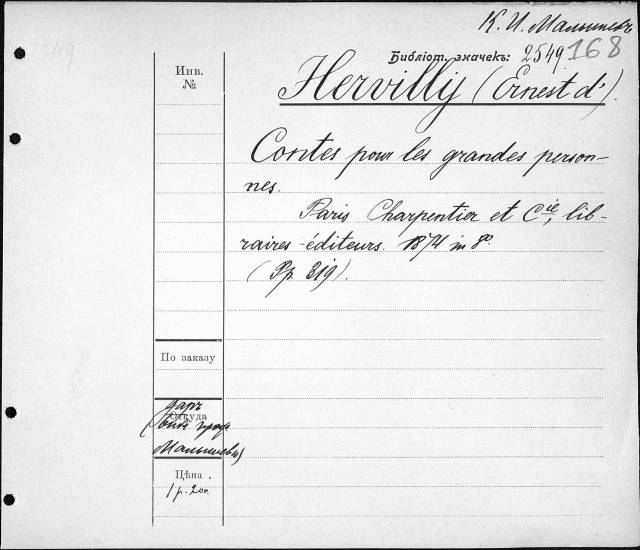 К. И. Малышевъ
Библіот. значекъ: 2549 168
Инв.
№
Hervilly (Ernest d').
Contes pour les grandes person-
nes.
Paris Charpentier et Cie, lib-
raires-éditeurs. 1874 in 8º.
(Pp. 319).
По заказу
даръ
Откуда
Малышева)
Цѣна .
1 р. 20 к.